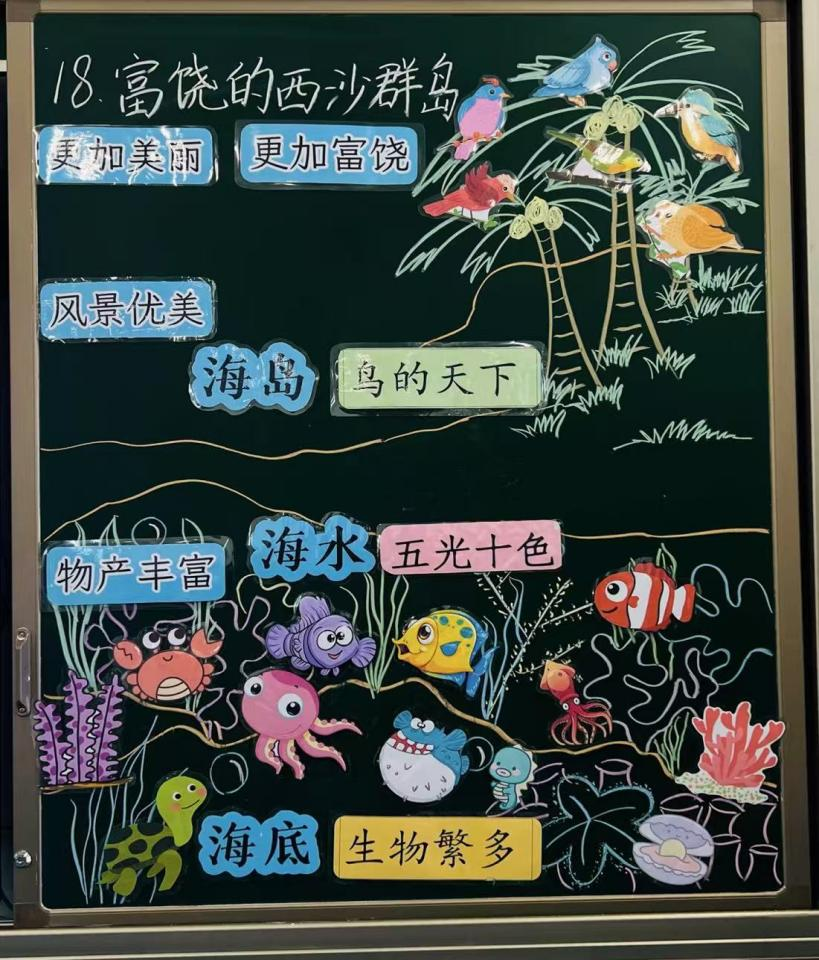 18.富饶的西沙群岛
更加美丽 更加富饶
风景优美
海岛 鸟的天下
海水 五光十色
物产丰富
海底 生物繁多